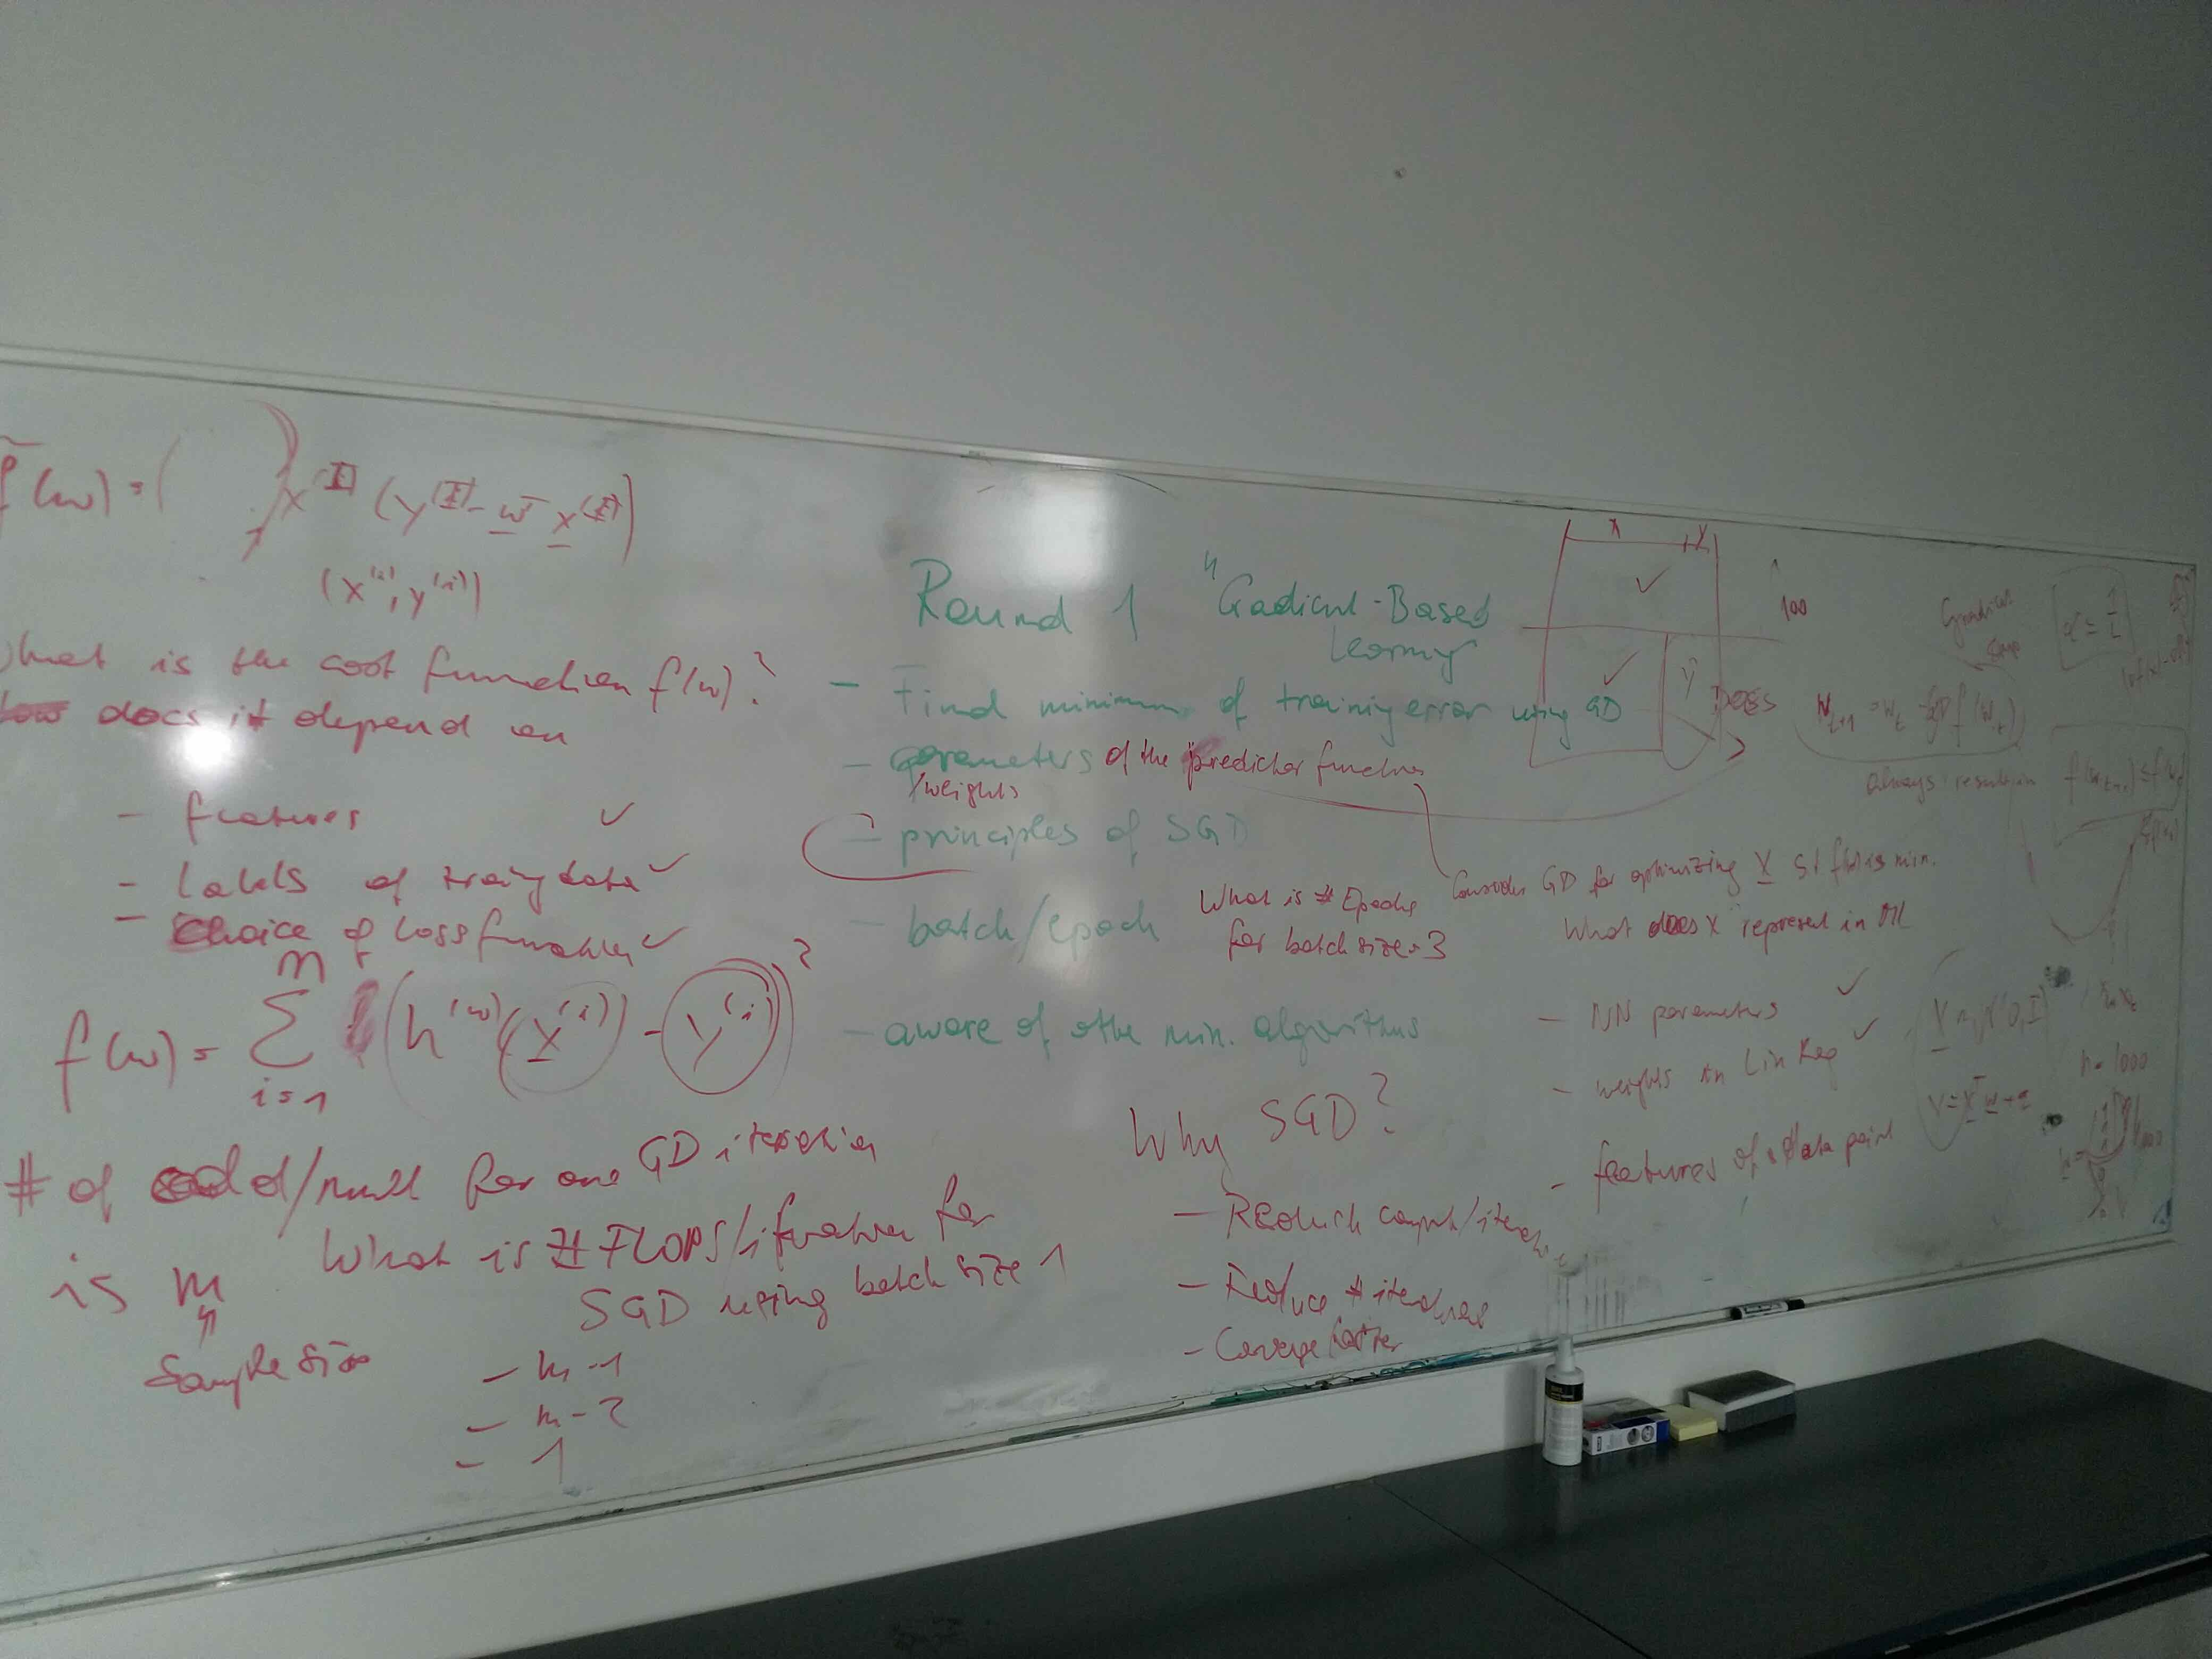 f(w) = ( ) x^(I) (y^(I) - w^T x^(I))
(x^(i), y^(i))
What is the cost function f(w)?
how does it depend on
- features ✓
- labels of training data ✓
- Choice of loss function ✓
f(w) = Σ_{i=1}^{m} (h^(w)(x^(i)) - y^(i))²
# of add/mult for one GD iteration
is m
Sample size
What is # FLOPS/iteration for
SGD using batch size 1
- m-1
- m-2
- 1
Round 1 "Gradient-Based
Learning
- Find minimum of training error using GD
- parameters of the predictor function
/weights
- principles of SGD
- batch/epoch
What is # Epochs
for batch size = 3
- aware of othe min. algorithms
Why SGD?
- Reduce comput/iteration
- Reduce # iterations
- Converge faster
100
Does
w_{t+1} = w_t - α∇f(w_t)
Gradient
step
α ≤ 1/L
always result in f(w_{t+1}) ≤ f(w_t)
Consider GD for optimizing X st f(x) is min.
What does X represent in ML
- NN parameters ✓
- weights in Lin Reg ✓
- features of a data point
X ~ N(0, I)
n = 1000